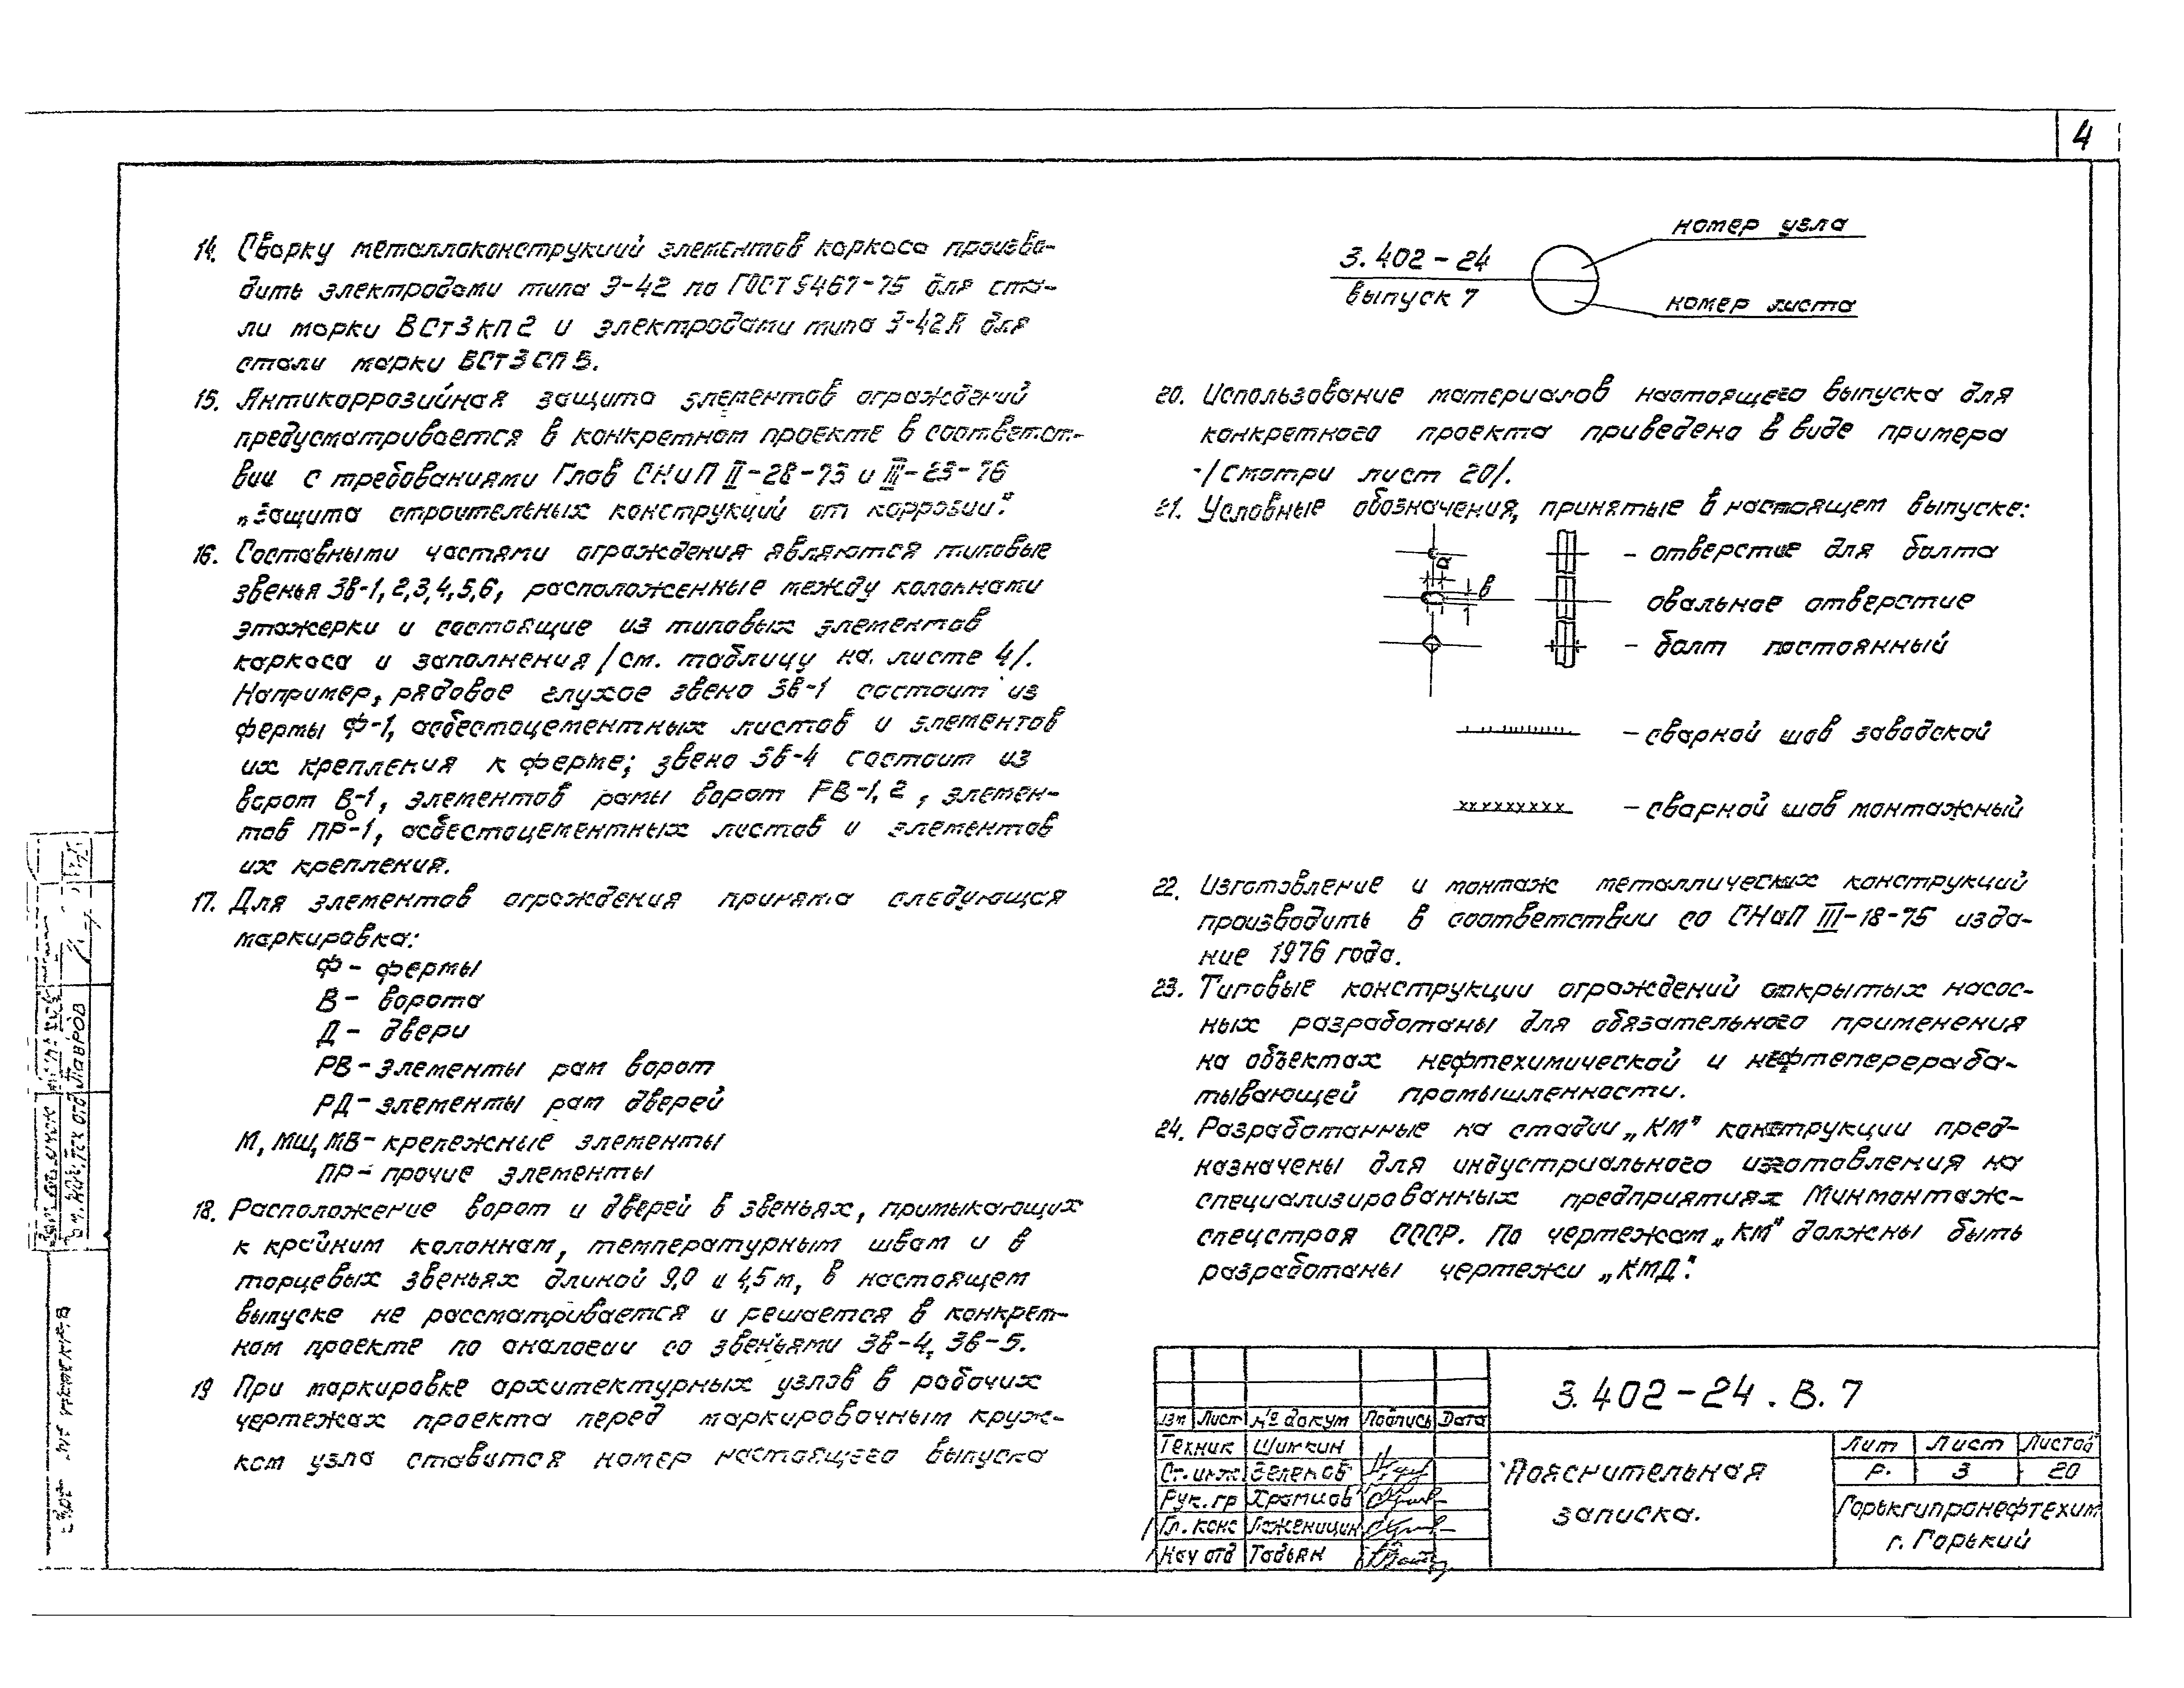 4
14. Сварку металлоконструкций элементов каркаса произво-
дить электродами типа Э-42 по ГОСТ 9467-75 для ста-
ли марки ВСт3кп2 и электродами типа Э-42А для
стали марки ВСт3сп5.
15. Антикоррозийная защита элементов ограждений
предусматривается в конкретном проекте в соответст-
вии с требованиями Глав СНиП II-28-73 и III-23-76
„Защита строительных конструкций от коррозии".
16. Составными частями ограждения являются типовые
звенья ЗВ-1,2,3,4,5,6, расположенные между колоннами
этажерки и состоящие из типовых элементов
каркаса и заполнения /см. таблицу на листе 4/.
Например, рядовое глухое звено ЗВ-1 состоит из
фермы Ф-1, асбестоцементных листов и элементов
их крепления к ферме; звено ЗВ-4 состоит из
ворот В-1, элементов рамы ворот РВ-1,2, элемен-
тов ПР-1, асбестоцементных листов и элементов
их крепления.
17. Для элементов ограждения принята следующая
маркировка:
Ф - фермы
В - ворота
Д - двери
РВ - элементы рам ворот
РД - элементы рам дверей
М, МЩ, МВ - крепежные элементы
ПР - прочие элементы
18. Расположение ворот и дверей в звеньях, примыкающих
к крайним колоннам, температурным швам и в
торцевых звеньях длиной 9,0 и 4,5 м, в настоящем
выпуске не рассматривается и решается в конкрет-
ном проекте по аналогии со звеньями ЗВ-4, ЗВ-5.
19 При маркировке архитектурных узлов в рабочих
чертежах проекта перед маркировочным круж-
ком узла ставится номер настоящего выпуска
номер узла
3.402-24
выпуск 7
номер листа
20. Использование материалов настоящего выпуска для
конкретного проекта приведено в виде примера
/смотри лист 20/.
21. Условные обозначения, принятые в настоящем выпуске:
- отверстие для болта
а
в
овальное отверстие
- болт постоянный
- сварной шов заводской
- сварной шов монтажный
22. Изготовление и монтаж металлических конструкций
производить в соответствии со СНиП III-18-75 изда-
ние 1976 года.
23. Типовые конструкции ограждений открытых насос-
ных разработаны для обязательного применения
на объектах нефтехимической и нефтеперераба-
тывающей промышленности.
24. Разработанные на стадии „КМ" конструкции пред-
назначены для индустриального изготовления на
специализированных предприятиях Минмонтаж-
спецстроя СССР. По чертежам „КМ" должны быть
разработаны чертежи „КМД".
3.402-24.В.7
Изм Лист № докум Подпись Дата
Техник Шишкин
Ст. инж Зеленов
Рук. гр Храмцов
Гл. конс Лаженицин
Нач отд Тадьян
Пояснительная
записка.
Лит Лист Листов
Р. 3 20
Горькгипронефтехим
г. Горький
Лавров